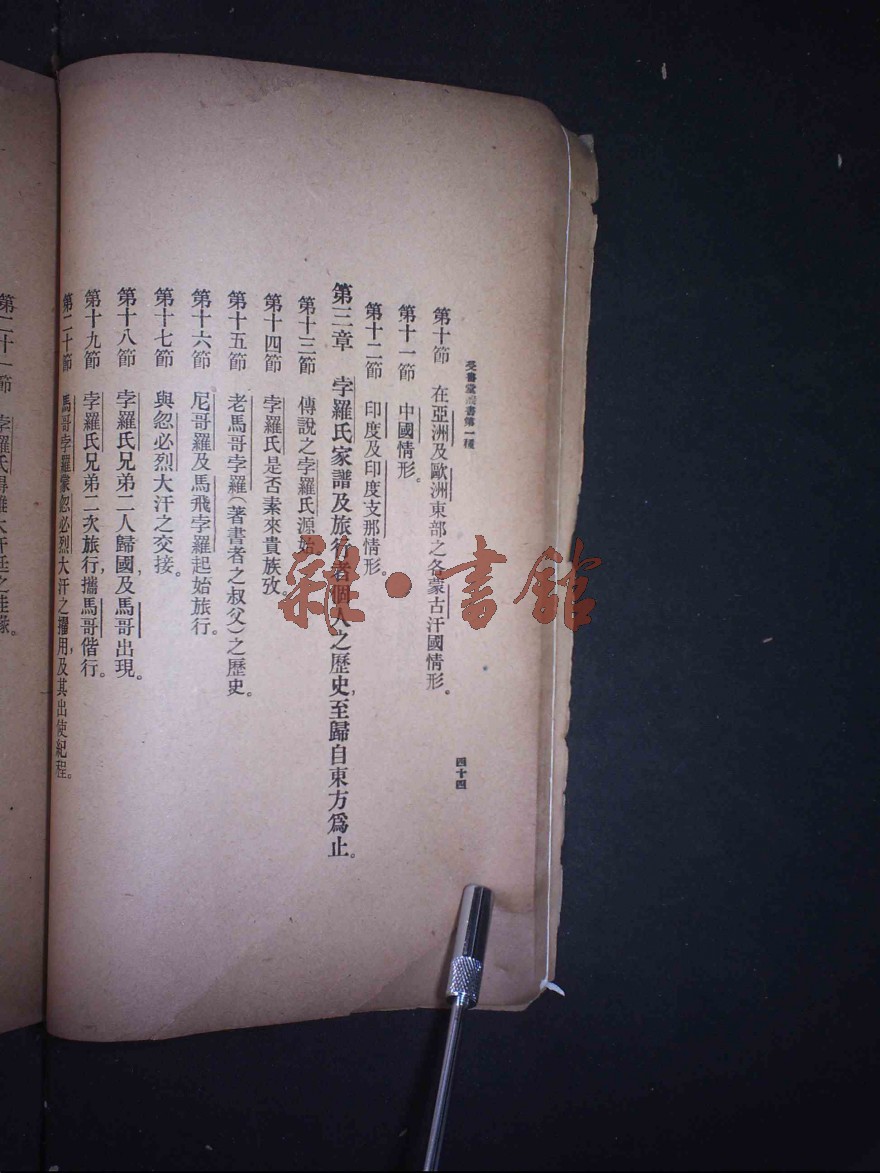 受書堂叢書第一種
四十四
第十節 在亞洲及歐洲東部之各蒙古汗國情形。
第十一節 中國情形。
第十二節 印度及印度支那情形。
第三章 孛羅氏家譜及旅行者個人之歷史,至歸自東方爲止。
第十三節 傳說之孛羅氏源始。
第十四節 孛羅氏是否素來貴族攷。
第十五節 老馬哥孛羅(著書者之叔父)之歷史。
第十六節 尼哥羅及馬飛孛羅起始旅行。
第十七節 與忽必烈大汗之交接。
第十八節 孛羅氏兄弟二人歸國,及馬哥出現。
第十九節 孛羅氏兄弟二次旅行,攜馬哥偕行。
第二十節 馬哥孛羅蒙忽必烈大汗之擢用,及其出使紀程。
第二十一節 孛羅氏得離大汗廷之佳緣。
雜·書館